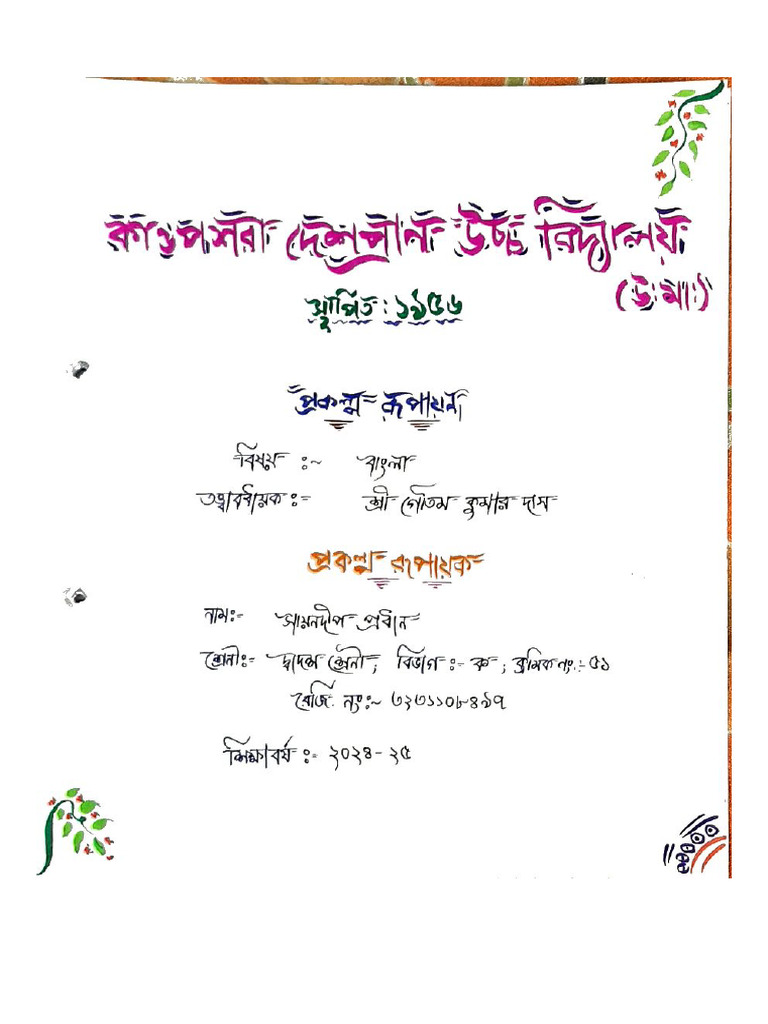 কাণ্ডপশরা দেশপ্রান উচ্চ বিদ্যালয়
(উঃমাঃ)
স্থাপিত : ১৯৫৬
প্রকল্প রূপায়ন
বিষয় :~ বাংলা
তত্ত্বাবধায়ক :- শ্রী গৌতম কুমার দাস
প্রকল্প রূপায়ক
নাম:- সায়নদীপ প্রধান
শ্রেনী:- দ্বাদশ শ্রেনী ; বিভাগ :- ক ; ক্রমিক নং :- ৫১
রেজি. নং:~ ৩২৩১১০৮৪৯৭
শিক্ষাবর্ষ :- ২০২৪-২৫